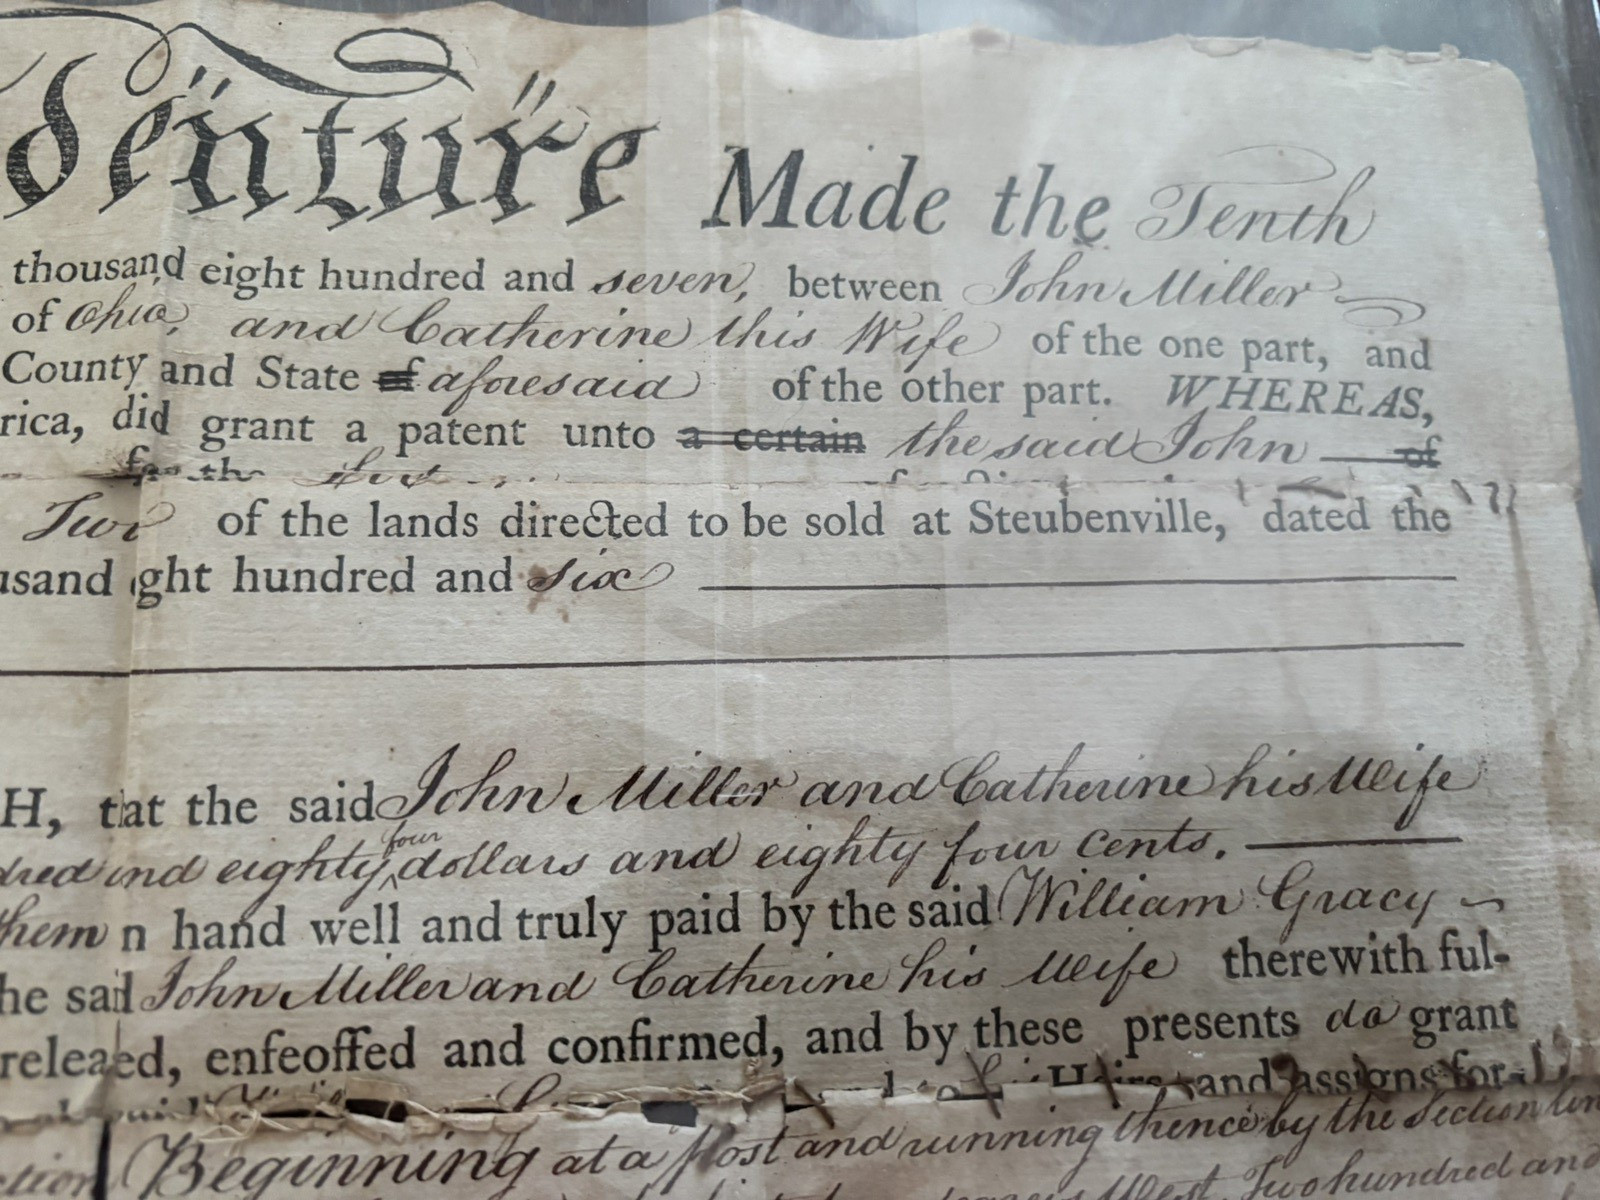 denture Made the Tenth
thousand eight hundred and seven, between John Miller
of Ohio, and Catherine this Wife of the one part, and
County and State of aforesaid of the other part. WHEREAS,
rica, did grant a patent unto a certain the said John of
for the
Two of the lands directed to be sold at Steubenville, dated the
usand ght hundred and six
H, tat the said John Miller and Catherine his Wife
four
dred ind eighty dollars and eighty four cents.
them n hand well and truly paid by the said William Gracy
he said John Miller and Catherine his Wife therewith ful-
releaed, enfeoffed and confirmed, and by these presents do grant
Heirs and assigns for-
ction Beginning at a Post and running thence by the Section lin
West, Two hundred and